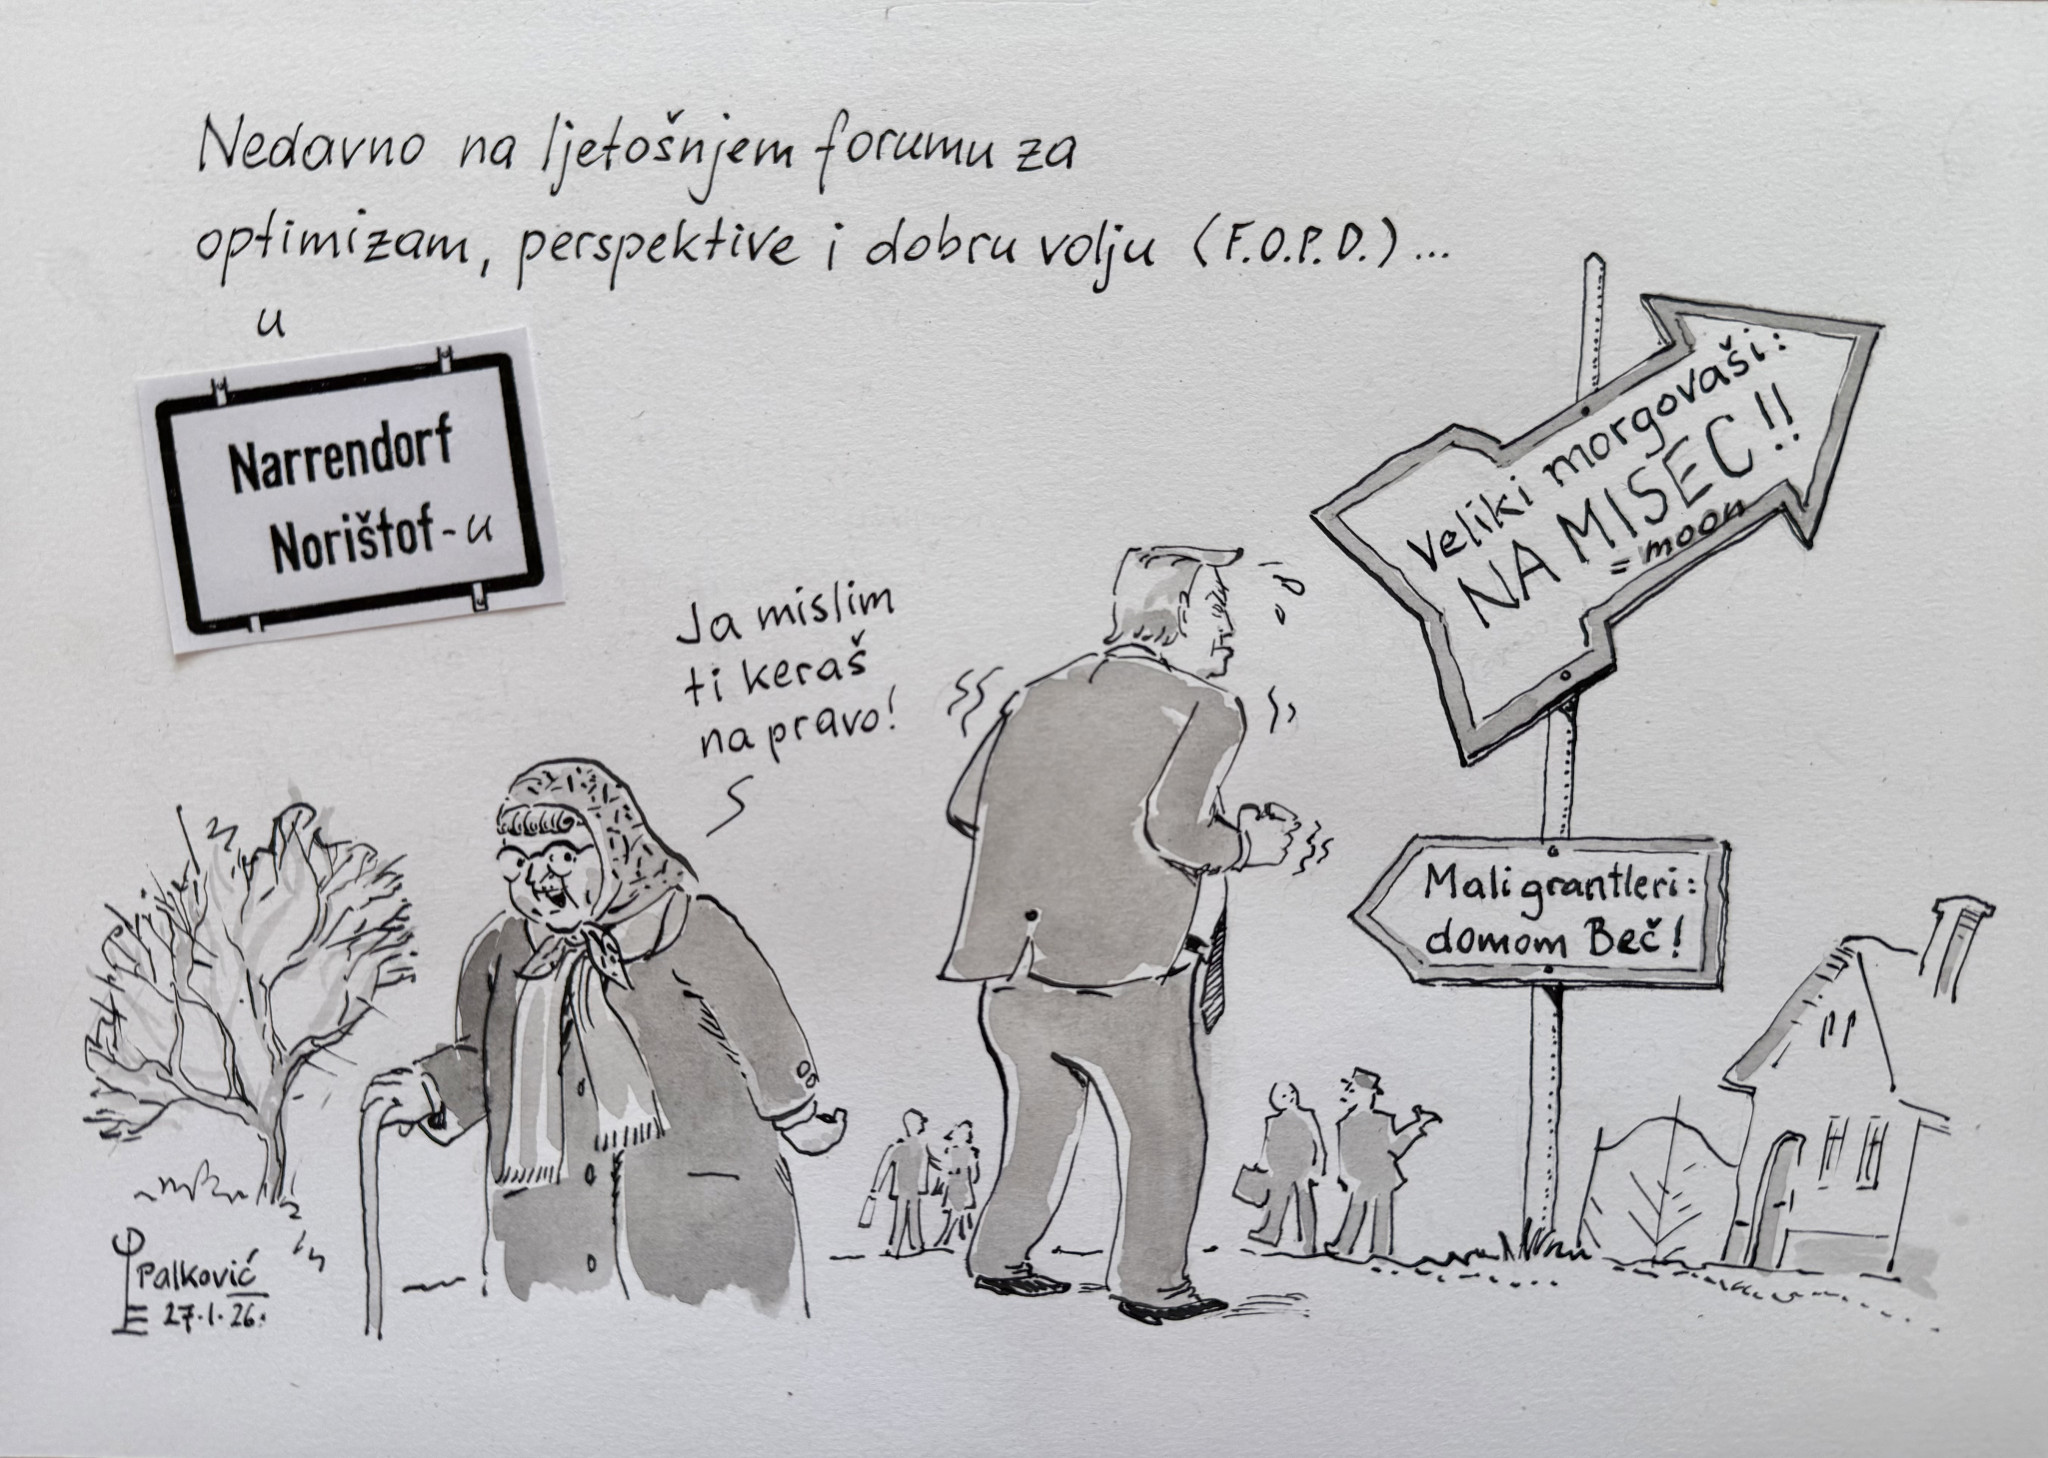 Nedavno na ljetošnjem forumu za
optimizam, perspektive i dobru volju (F.O.P.D.)...
u
Narrendorf
Norištof-u
Ja mislim
ti keraš
na pravo!
Veliki morgovaši:
NA MISEC!!
= moon
Mali grantleri:
domom Beč!
Palković
27.1.26.